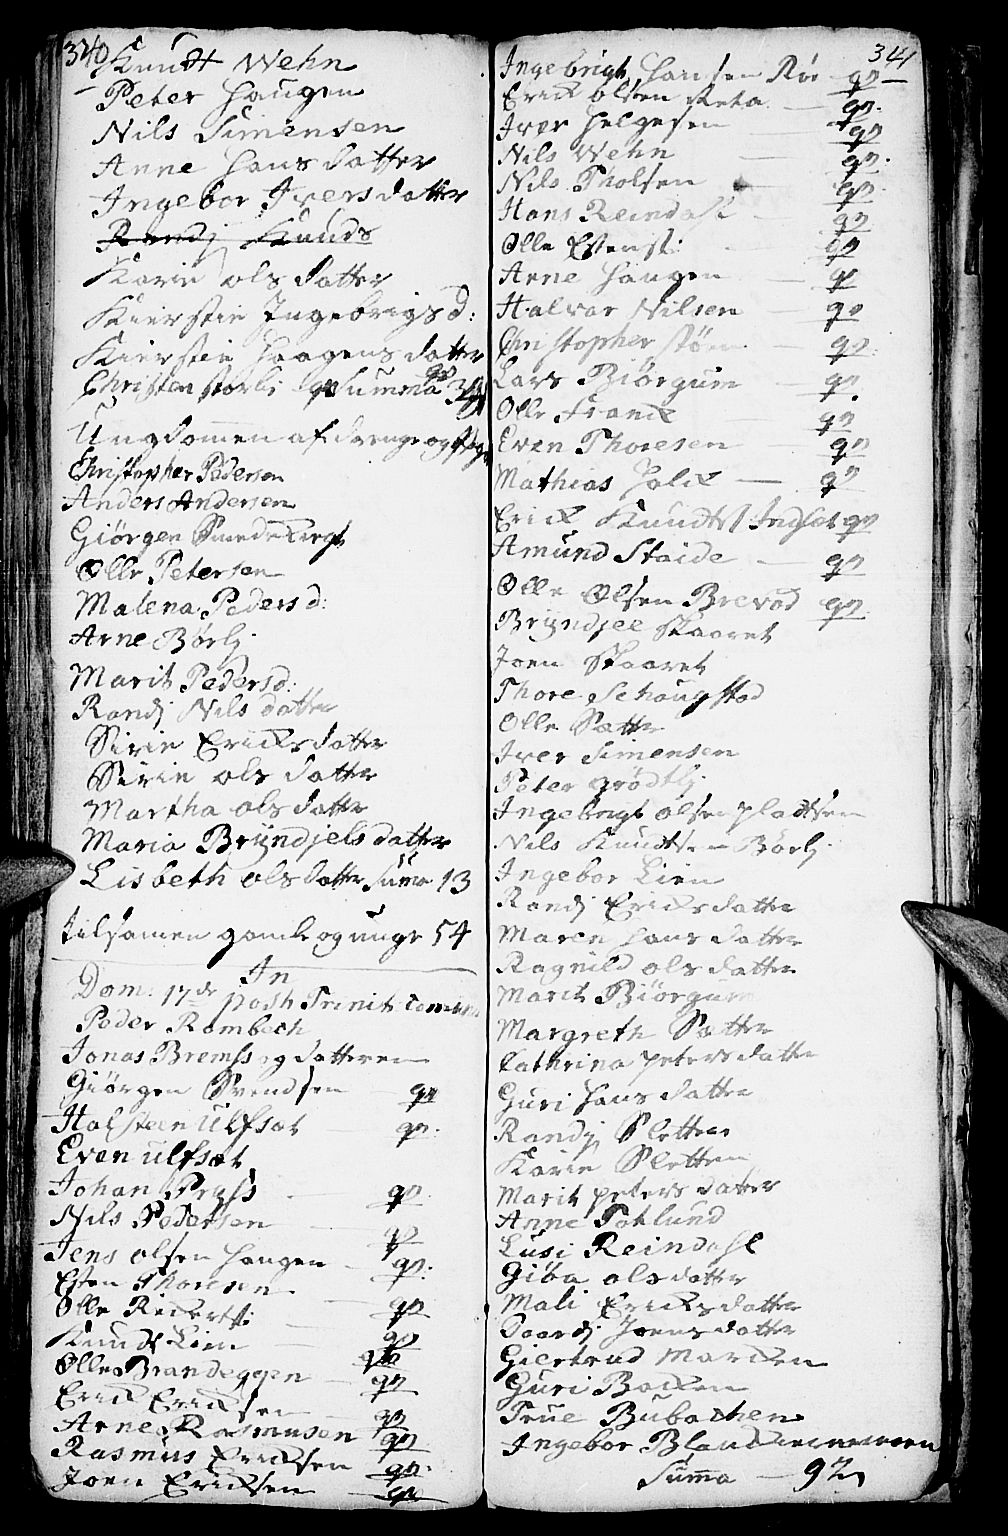 340
Knudt Wehn
Peter Haugen
Nils Simensen
Anne Hans datter
Ingebor Ivers datter
Randj Knuds
Karie ols datter
Kierstie Ingebrigs d:
Kierstie Haagens datter
Christen størli Summa
Ungdommen af drenge og
Christopher Pedersen
Anders Andersen
Giørgen
Olle Petersen
Malena Peders d:
Arne Børlj
Marit Peders d:
Randj Nils datter
Sirie Ericks datter
Sirie ols datter
Martha ols datter
Maria Bryndjels datter
Lisbeth ols datter Suma 13
tilsamen gamle og unge 54
In
Dom: 17de post Trinit:
Peder Rambech
Jonas Bremss og datteren
Giørgen Svendsen qn
Halsteen Ulfsøt qn:
Even Ulfsøt
Johan Pryss qn
Nils Pedersen qn
Jens olsen Haugen qn:
Esten Thoresen
Olle Rickertst: qn
Knudt Lien qn
Olle Brandeggen qn
Erick Ericksen qn
Arne Rasmusen qn
Rasmus Ericksen qn:
Joen Ericksen qn
341
Ingebrigt Hansen Røe qn
Erick olsen qn:
Iver Helgesen qn
Nils Wehn qn:
Nils Tholsen qn
Hans Reindahl qn
Olle Estenst: qn
Arne Haugen qn
Halvar Nilsen qn
Christopher støen qn:
Lars Biørgum qn.
Olle Franck qn
Even Thoresen qn
Mathias Falck qn
Erick Knudts Indset qn
Amund Staide qn
Olle Olsen Brevod qn:
Bryndjel Skaaret
Joen Skaaret
Thore Schaugstad
Olle Sætter
Iver Simensen
Peter Grødtlj
Ingebrigt olsen pladtsen
Nils Knudtsen Børlj
Ingebor Lien
Randj Ericks datter
Maren Hans datter
Ragnild ols datter
Marit Biørgum
Margreth Sætter
Cathrina peters datter
Guri Hans datter
Randj Sletten
Karie Sletten
Marit peters datter
Anne
Lusi Reindahl
Giøa ols datter
Mali Ericks datter
Joens datter
Giertrud Marcken
Guri Backen
True Bubachen
Ingebor
Summa 92